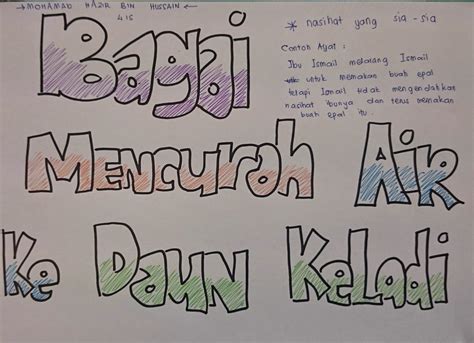 →MOHAMAD HAZIR BIN HUSSAIN←
4 IS
* nasihat yang sia-sia
Contoh Ayat :
Ibu Ismail melarang Ismail
untuk memakan buah epal
tetapi Ismail tidak mengendahkan
nasihat ibunya dan terus memakan
buah epal itu.
Bagai
MENCUROH AIR
Ke DAUN KeLADi